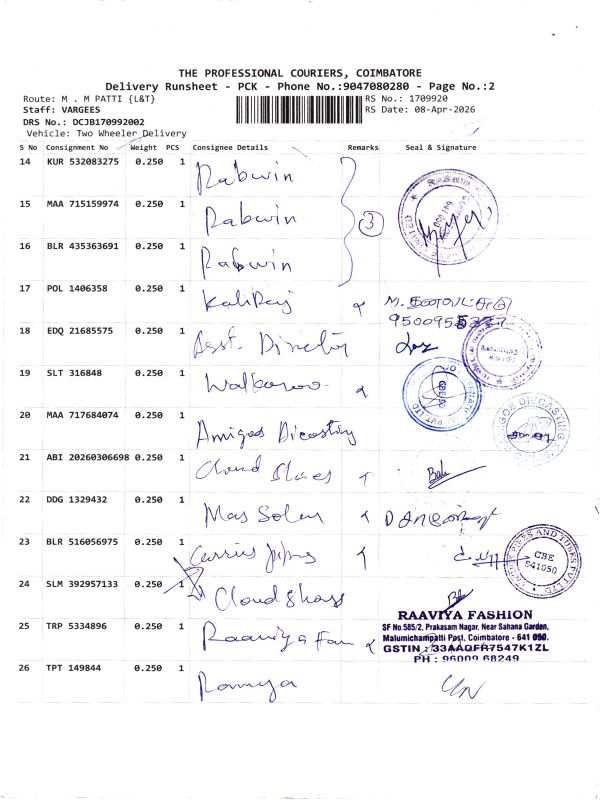 THE PROFESSIONAL COURIERS, COIMBATORE
Delivery Runsheet - PCK - Phone No.:9047080280 - Page No.:2
Route: M . M PATTI {L&T}
RS No.: 1709920
Staff: VARGEES
RS Date: 08-Apr-2026
DRS No.: DCJB170992002
Vehicle: Two Wheeler Delivery
S No Consignment No Weight PCS Consignee Details Remarks Seal & Signature
14 KUR 532083275 0.250 1 Rabwin
15 MAA 715159974 0.250 1 Rabwin 3
16 BLR 435363691 0.250 1 Rabwin
17 POL 1406358 0.250 1 KaliRaj M.
18 EDQ 21685575 0.250 1 Asst. Director
19 SLT 316848 0.250 1
20 MAA 717684074 0.250 1 Amigos Diecasting
21 ABI 20260306698 0.250 1 Cloud
22 DDG 1329432 0.250 1 Mas Solar
23 BLR 516056975 0.250 1
CBE
641050
24 SLM 392957133 0.250 1 Cloud
25 TRP 5334896 0.250 1 Raaviya
RAAVIYA FASHION
SF No.585/2, Prakasam Nagar, Near Sahana Garden,
Malumichampatti Post, Coimbatore - 641 050.
GSTIN : 33AAQFR7547K1ZL
PH : 96009 68249
26 TPT 149844 0.250 1 Ramya